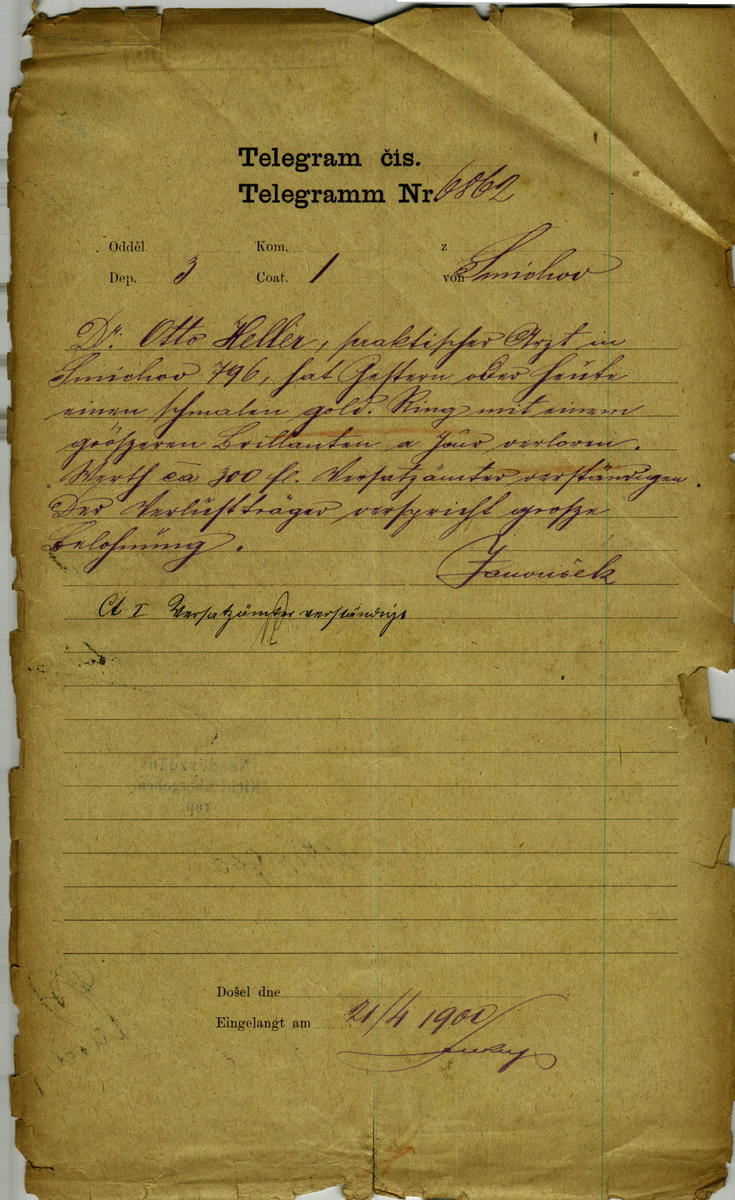 Telegram čís.
Telegramm Nr. 6862
Odděl. Kom. z
Dep. 3 Coat. 1 von Smichov
Dr. Otto Heller, praktischer Arzt in
Smichov 796, hat Gestern oder heute
einen schmalen gold. Ring mit einem
gröószeren Brillanten a Jour verloren.
Werth ca 300 fl. Versatzämter verständigen.
Der Verlustträger verspricht grosze
Belohnung.
Janoušek
Ct I Versatzämter verständigt
Došel dne
Eingelangt am 21/4 1900